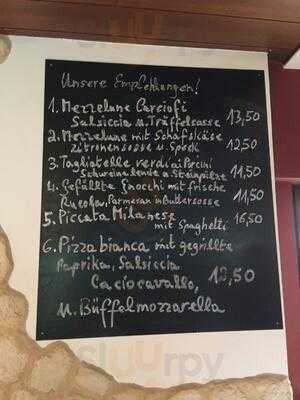 Unsere Empfehlungen!
1. Mezzelune Carciofi
Salsiccia u. Trüffelsasse 13,50
2. Mezzelune mit Schafskäse
Zitronensosse u. Speck 12,50
3. Tagliatelle verdi ai Porcini
Schweinelende u Steinpilze 11,50
4. Gefüllte Gnocchi mit frische
Rucola, Parmesan in Buttersosse 11,50
5. Piccata Milanese
mit Spaghetti 16,50
6. Pizza bianca mit gegrillte
Paprika, Salsiccia
Caciocavallo, 18,50
u. Büffelmozzarella
sluurpy